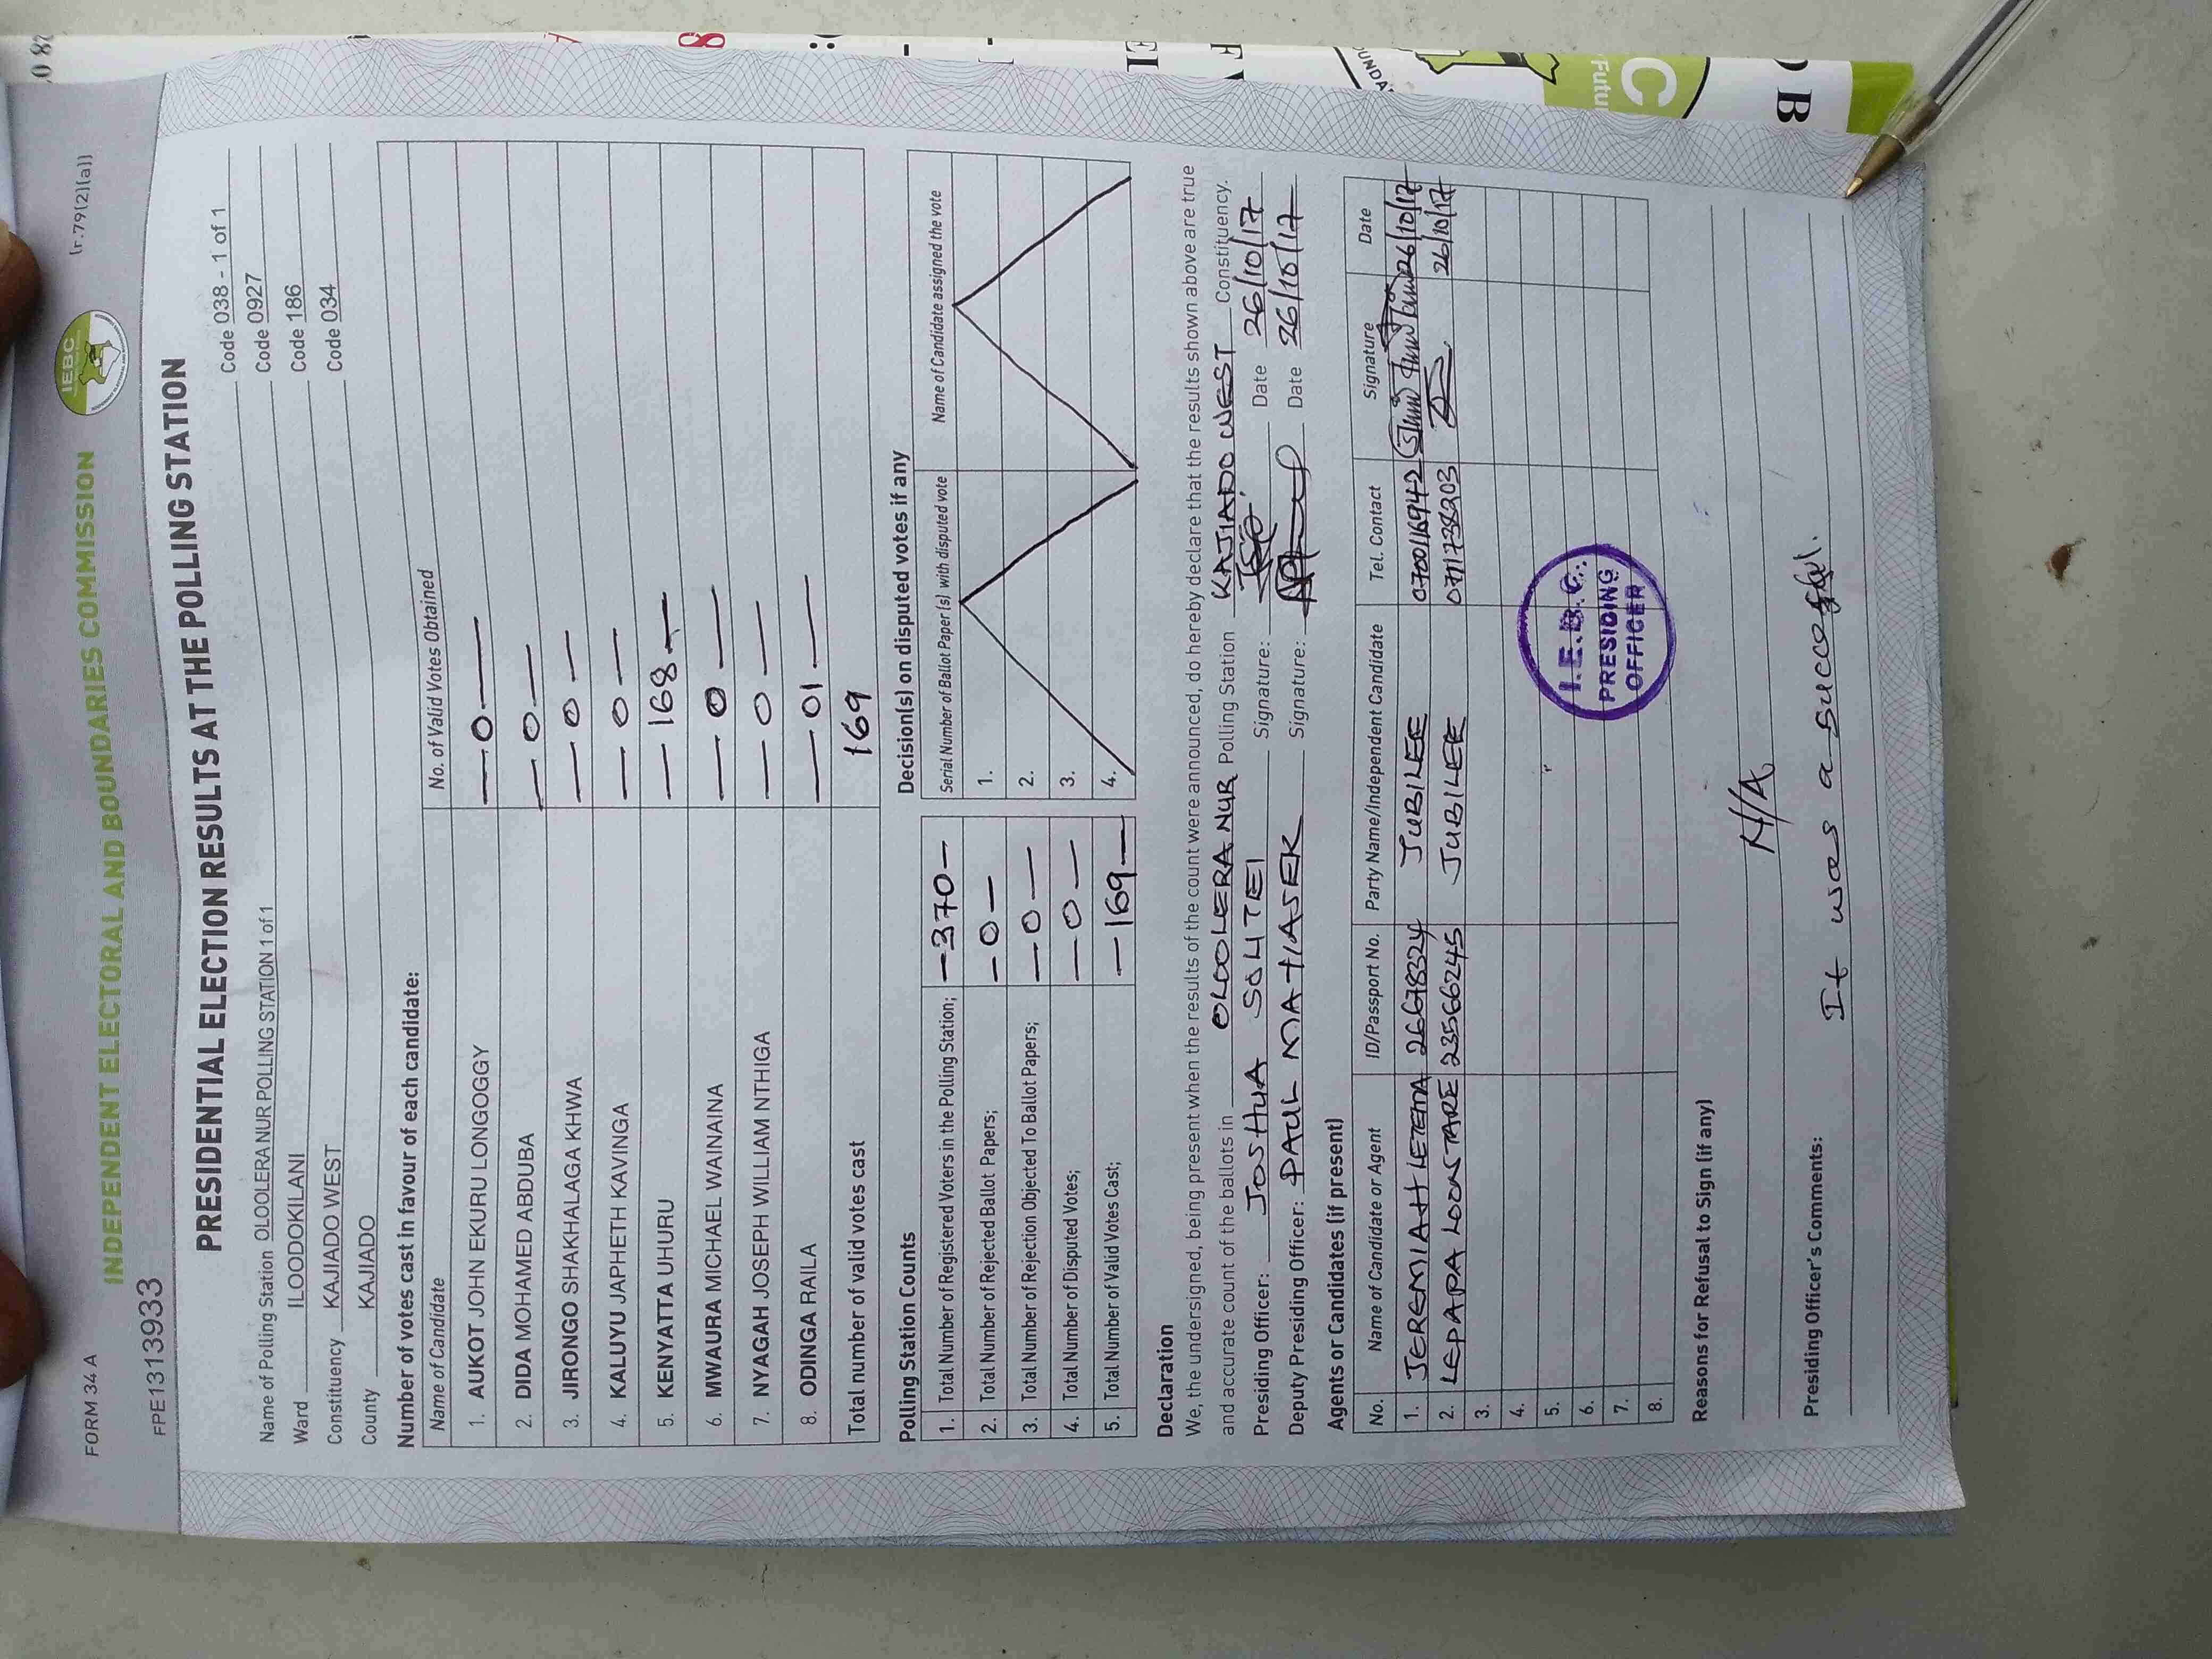 FORM 34 A
INDEPENDENT ELECTORAL AND BOUNDARIES COMMISSION
IEBC
(r.79(2)(a))
FPE1313933
PRESIDENTIAL ELECTION RESULTS AT THE POLLING STATION
Name of Polling Station OLOOLERA NUR POLLING STATION 1 of 1 Code 038 - 1 of 1
Ward ILOODOKILANI Code 0927
Constituency KAJIADO WEST Code 186
County KAJIADO Code 034
Number of votes cast in favour of each candidate:
Name of Candidate No. of Valid Votes Obtained
1. AUKOT JOHN EKURU LONGOGGY — 0 —
2. DIDA MOHAMED ABDUBA — 0 —
3. JIRONGO SHAKHALAGA KHWA — 0 —
4. KALUYU JAPHETH KAVINGA — 0 —
5. KENYATTA UHURU — 168 —
6. MWAURA MICHAEL WAINAINA — 0 —
7. NYAGAH JOSEPH WILLIAM NTHIGA — 0 —
8. ODINGA RAILA — 01 —
Total number of valid votes cast 169
Polling Station Counts
1. Total Number of Registered Voters in the Polling Station; — 370 —
2. Total Number of Rejected Ballot Papers; — 0 —
3. Total Number of Rejection Objected To Ballot Papers; — 0 —
4. Total Number of Disputed Votes; — 0 —
5. Total Number of Valid Votes Cast; — 169 —
Decision(s) on disputed votes if any
Serial Number of Ballot Paper (s) with disputed vote Name of Candidate assigned the vote
1.
2.
3.
4.
Declaration
We, the undersigned, being present when the results of the count were announced, do hereby declare that the results shown above are true
and accurate count of the ballots in OLOOLERA NUR Polling Station KAJIADO WEST Constituency.
Presiding Officer: JOSHUA SOLITEI Signature: Date 26/10/17
Deputy Presiding Officer: PAUL MATIASEK Signature: Date 26/10/17
Agents or Candidates (if present)
No. Name of Candidate or Agent ID/Passport No. Party Name/Independent Candidate Tel. Contact Signature Date
1. JEREMIAH LETEMA 26678324 JUBILEE 0700116942 26/10/17
2. LEPAPA 23566245 JUBILEE 26/10/17
3.
4.
5.
6.
7.
8.
I.E.B.C.
PRESIDING
OFFICER
Reasons for Refusal to Sign (if any)
N/A
Presiding Officer's Comments:
It was a successful.